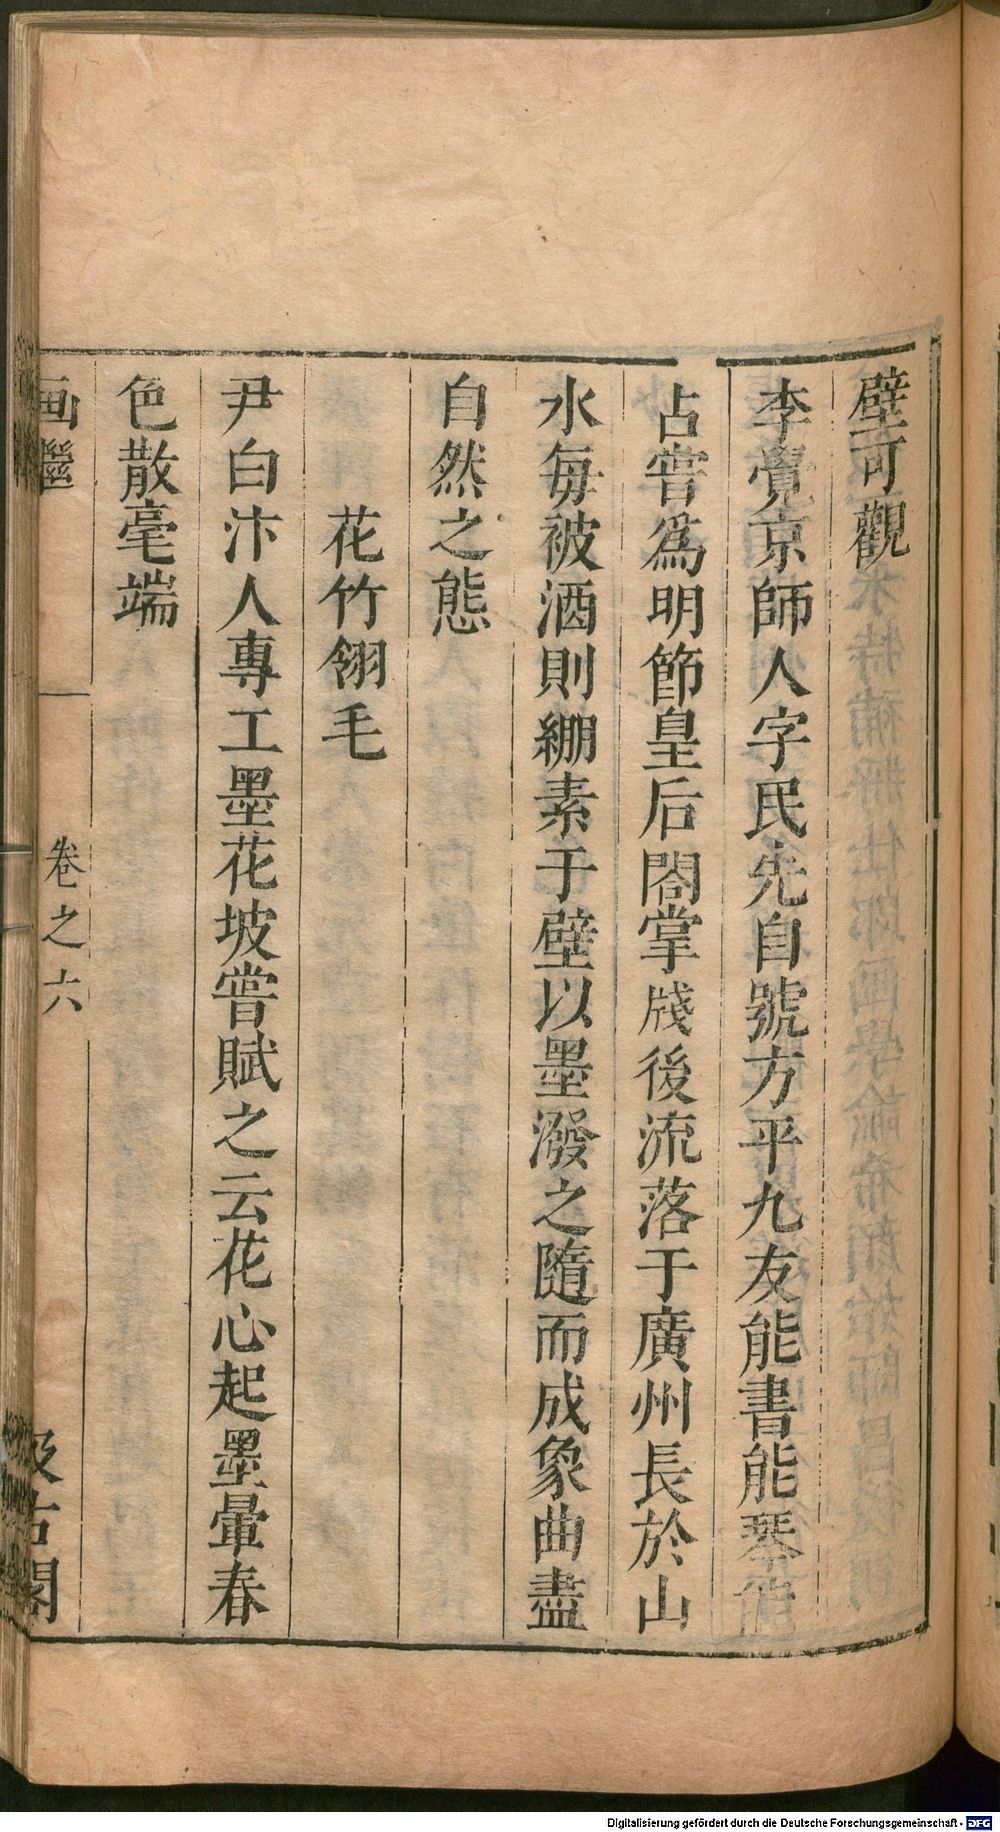 壁可觀
李覺京師人字民先自號方平九友能書能琴
占嘗爲明節皇后閤掌牋後流落于廣州長於山
水每被酒則繃素于壁以墨潑之隨而成象曲盡
自然之態
花竹翎毛
尹白汴人專工墨花坡嘗賦之云花心起墨暈春
色散毫端
画繼 卷之六 汲古閣
Digitalisierung gefördert durch die Deutsche Forschungsgemeinschaft - DFG